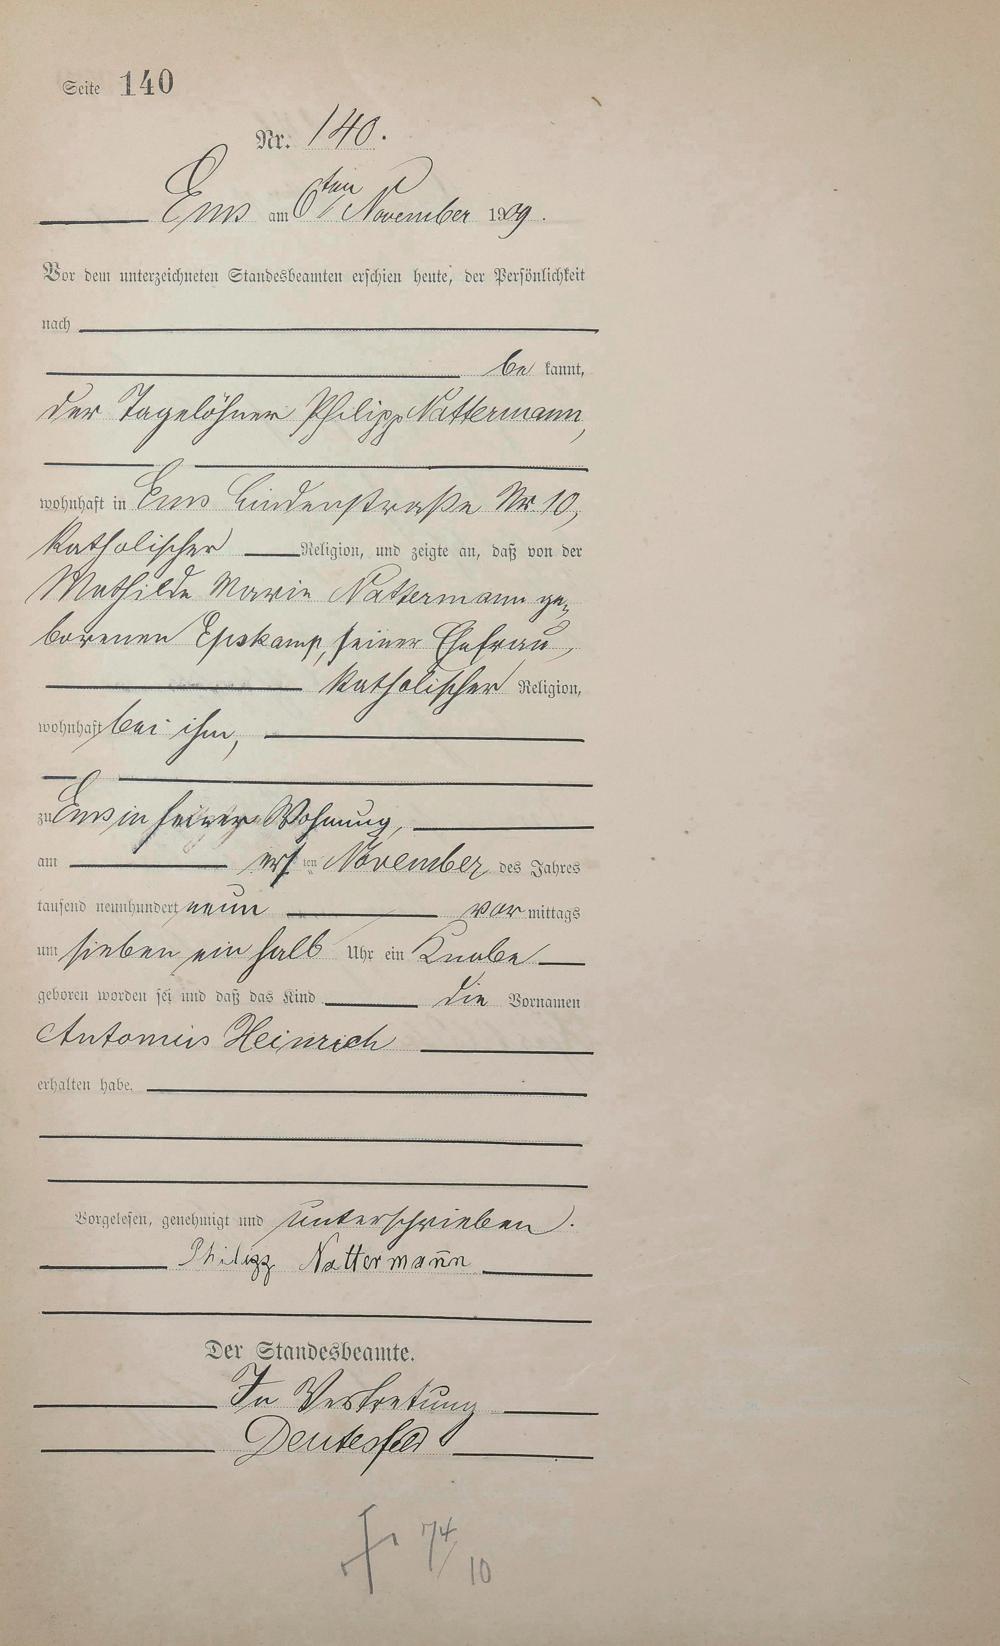 Seite 140
Nr. 140.
Ems am 6ten November 1909.
Vor dem unterzeichneten Standesbeamten erschien heute, der Persönlichkeit
nach
be kannt,
der Tagelöhner Philipp Nattermann,
wohnhaft in Ems Lindenstraße Nr 10,
katholischer Religion, und zeigte an, daß von der
Mathilde Maria Nattermann ge-
borenen Epskamp, seiner Ehefrau,
katholischer Religion,
wohnhaft bei ihm,
zu Ems in seiner Wohnung,
am ersten November des Jahres
tausend neunhundert neun vor mittags
um sieben ein halb Uhr ein Knabe
geboren worden sei und daß das Kind die Vornamen
Antonius Heinrich
erhalten habe.
Vorgelesen, genehmigt und unterschrieben.
Philipp Nattermann
Der Standesbeamte.
In Vertretung
74/10